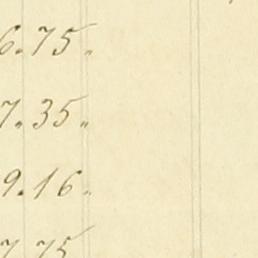 6.75.
7.35.
9.16.
7.75